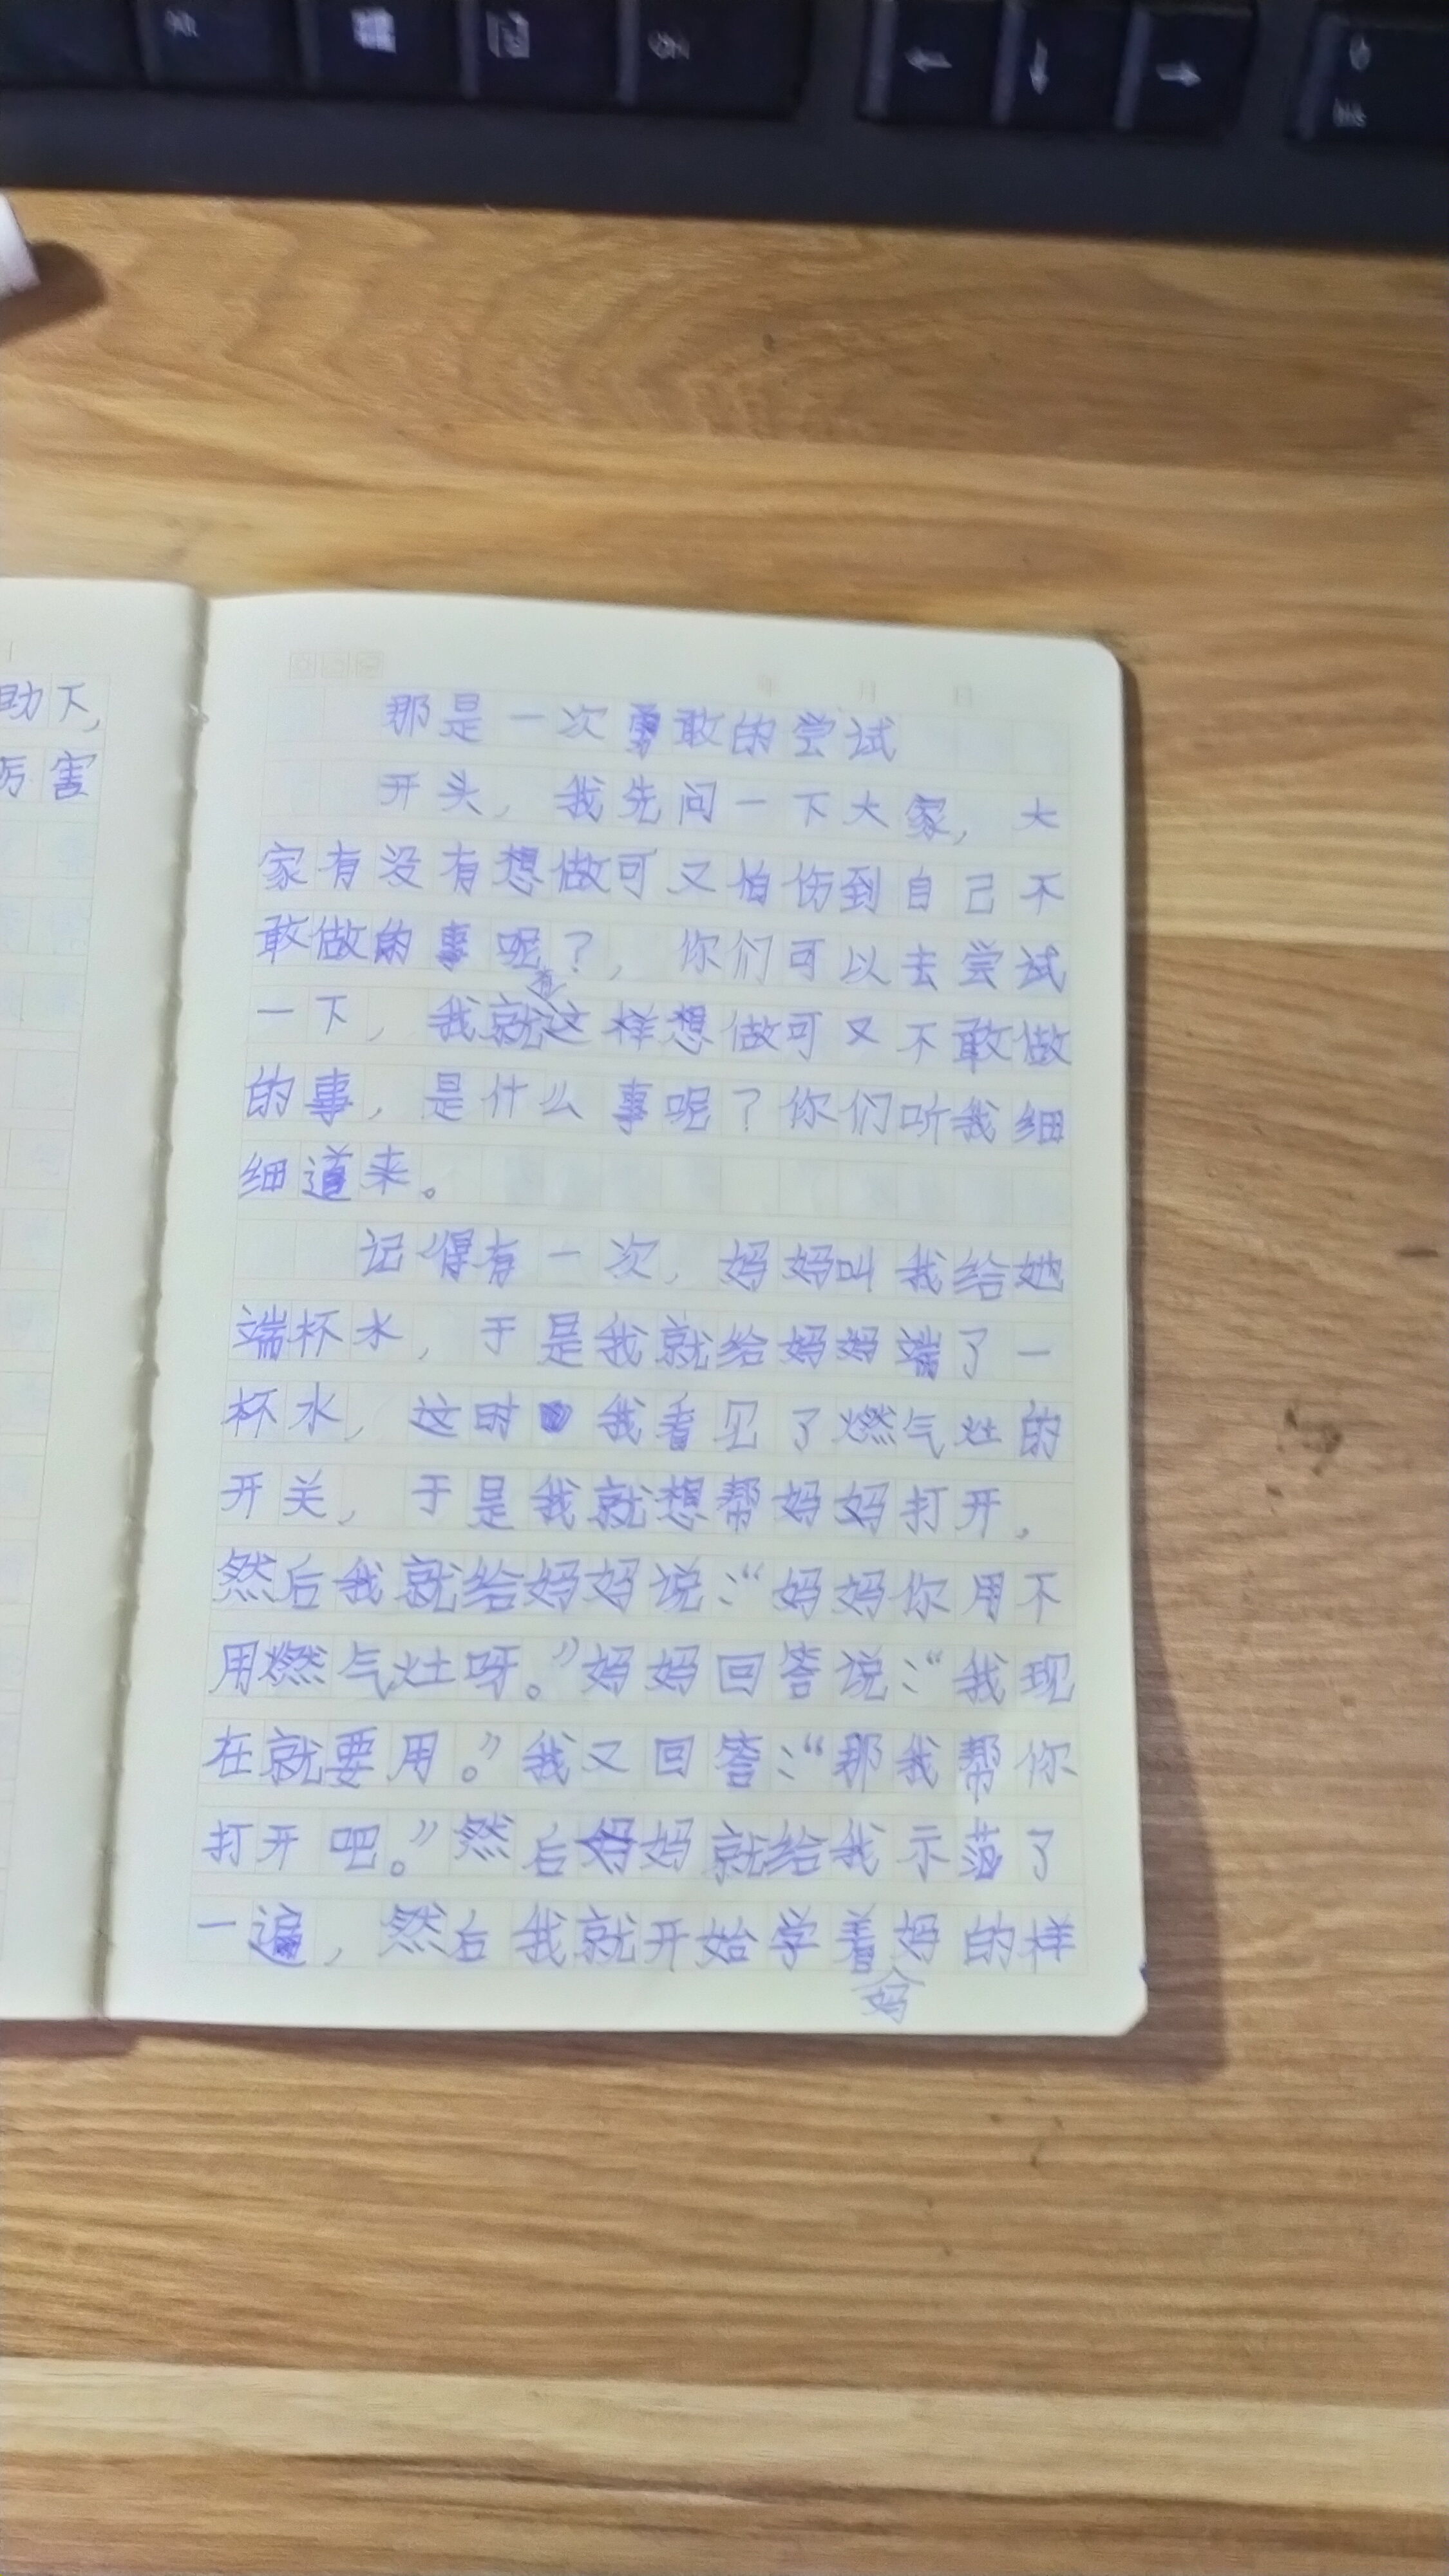 Alt
Ctrl
←
↓
→
0
Ins
助下,
厉害
年 月 日
那是一次勇敢的尝试
开头,我先问一下大家,大
家有没有想做可又怕伤到自己不
敢做的事呢?,你们可以去尝试
一下,我就有这样想做可又不敢做
的事,是什么事呢?你们听我细
细道来。
记得有一次,妈妈叫我给她
端杯水,于是我就给妈妈端了一
杯水,这时我看见了燃气灶的
开关,于是我就想帮妈妈打开,
然后我就给妈妈说:“妈妈你用不
用燃气灶呀。”妈妈回答说:“我现
在就要用。”我又回答:“那我帮你
打开吧。”然后妈妈就给我示范了
一遍,然后我就开始学着妈妈的样